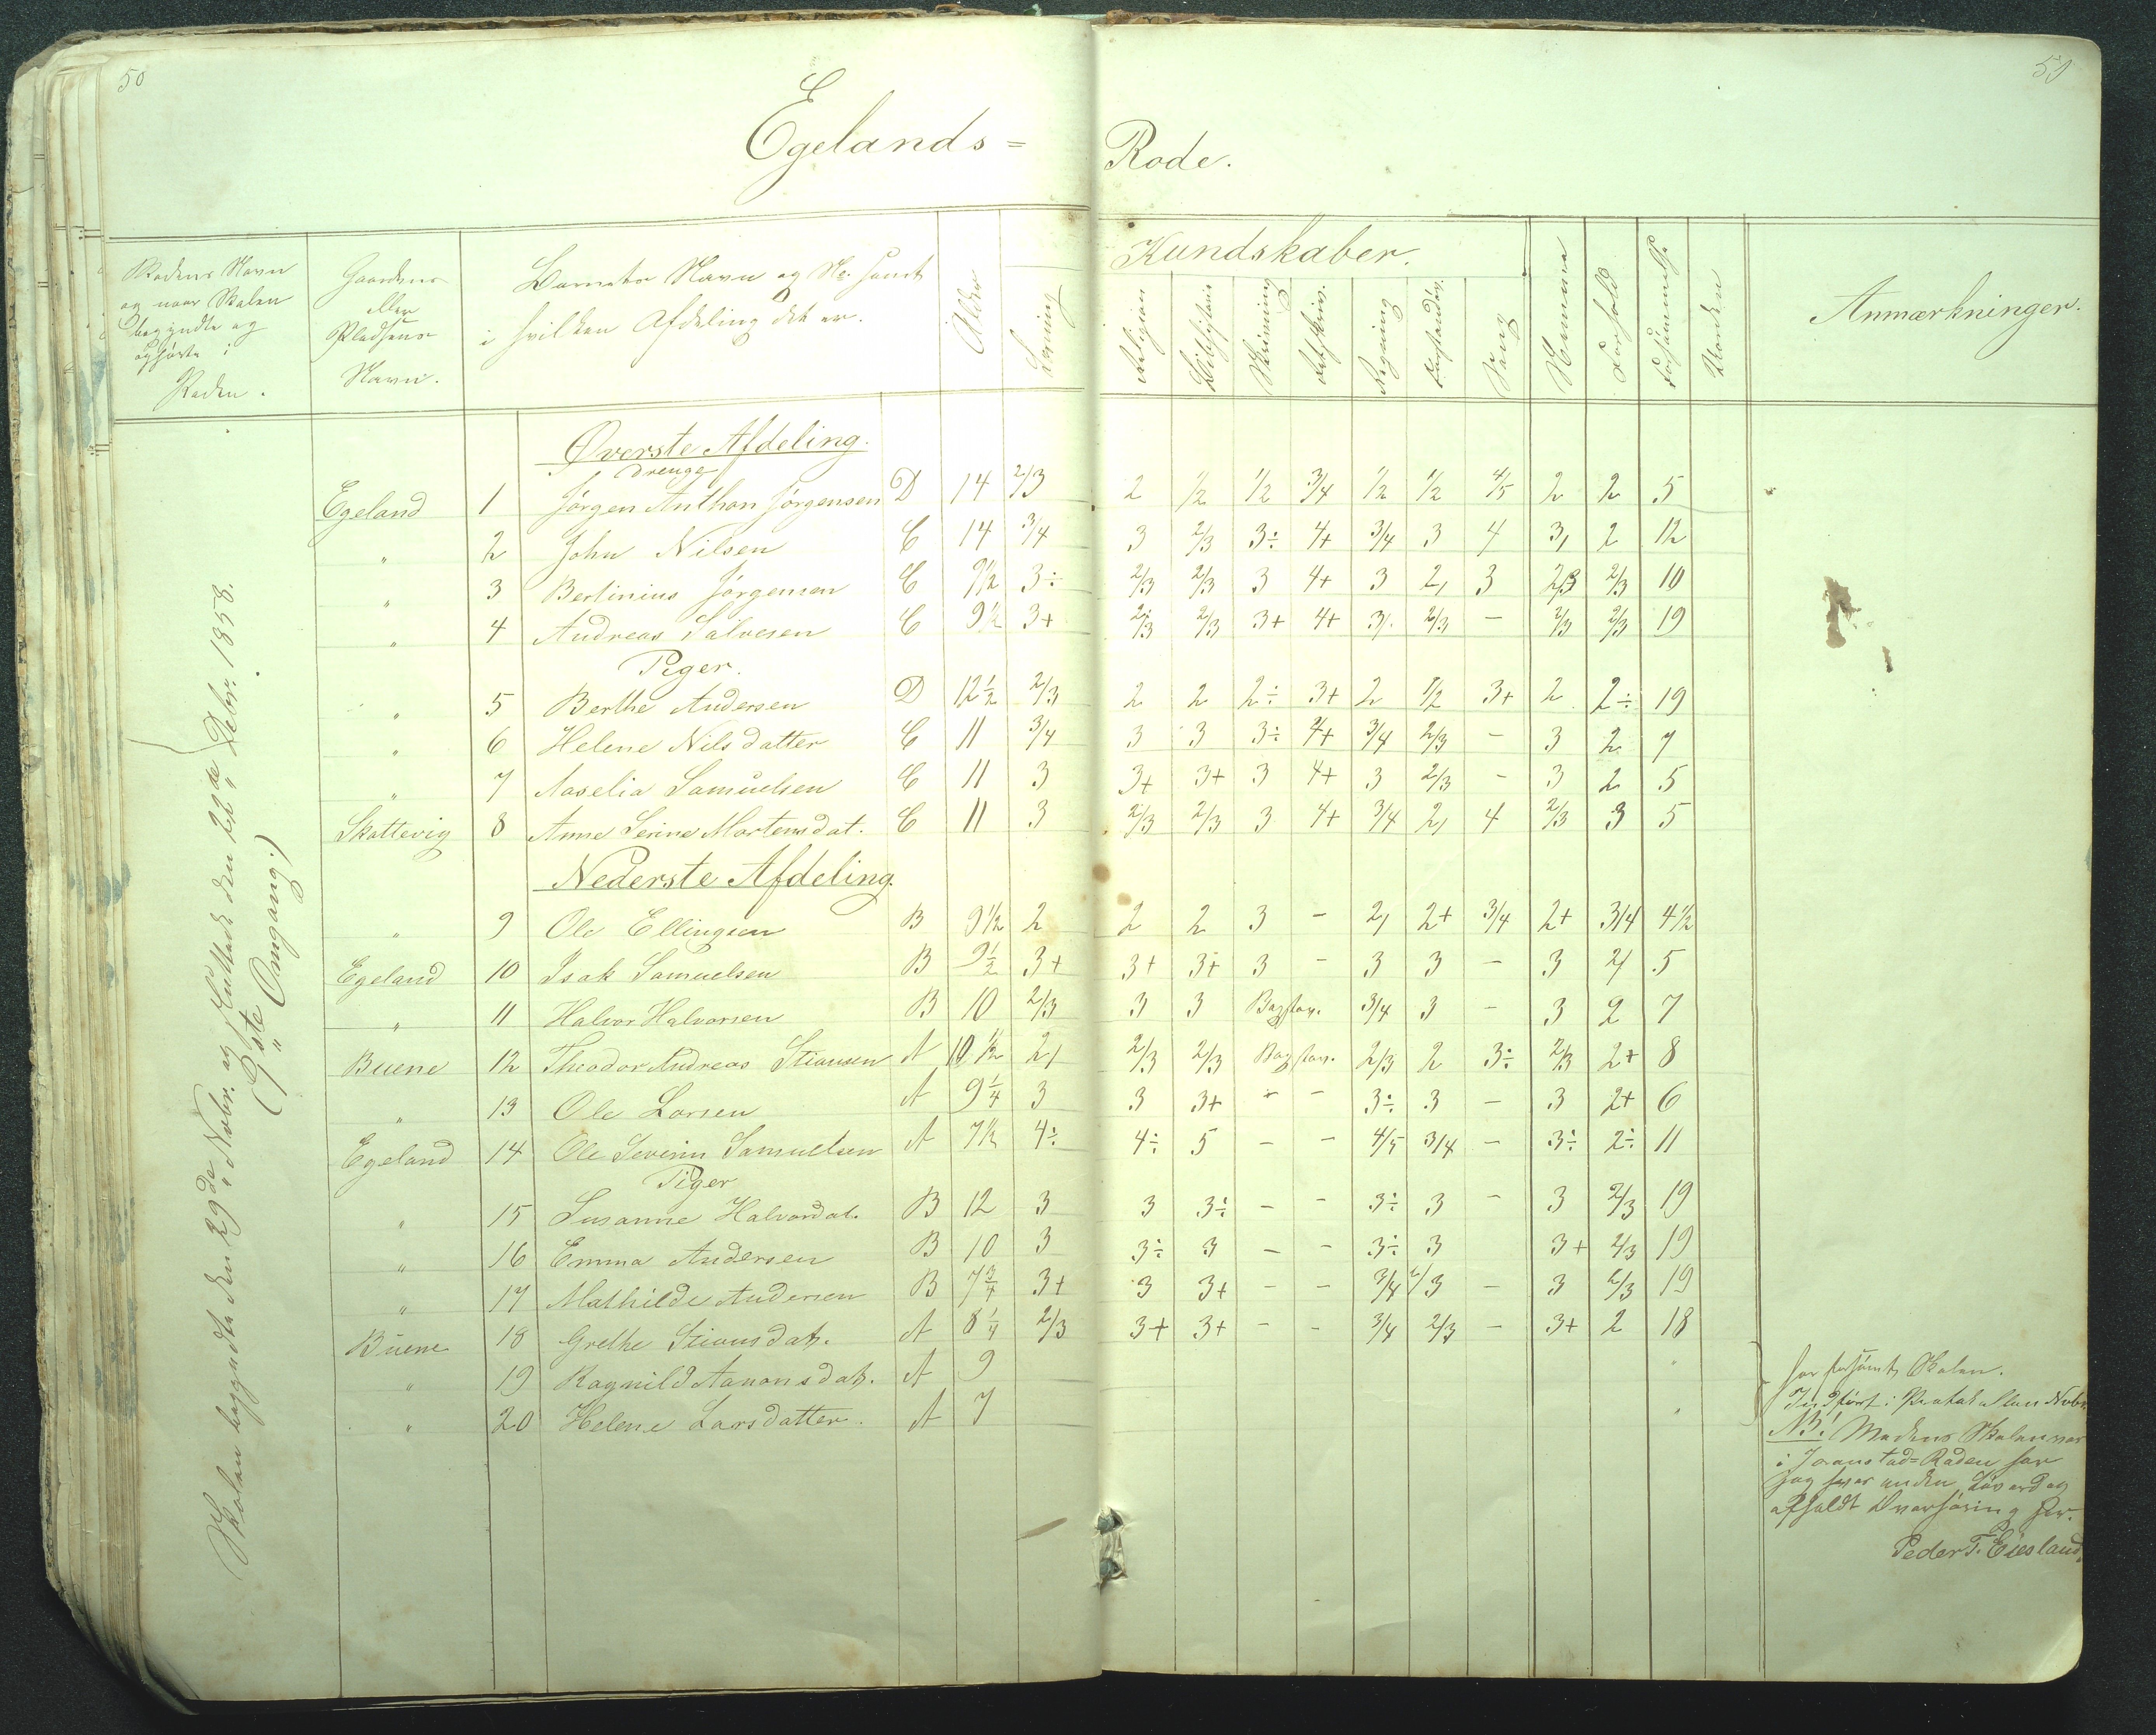 50
50
Egelands = Rode.
Rodens Navn og naar Skolen begyndte og ophørte i Roden.
Gaardens eller Pladsens Navn.
Barnets Navn og No. samt i hvilken Afdeling det er.
Alder
Læsning
Kundskaber.
Religion
Bibelhistorie
Skrivning
Retskriv.
Regning
Forstandsøv.
Sang
Nemme
Forhold
Forsømmelse
Anmærkninger.
Skolen begyndte den 29de Novbr. og sluttede den 22de Debr. 1858.
(9de Omgang.)
Øverste Afdeling.
Drenge
Egeland 1 Jørgen Anthon Jørgensen D 14 2/3 2 1/2 1/2 3/4 1/2 1/2 4/5 2 2 5
" 2 John Nilsen C 14 3/4 3 2/3 3÷ 4+ 3/4 3 4 3, 2 12
" 3 Bertinius Jørgensen C 9 1/2 3÷ 2/3 2/3 3 4+ 3 2, 3 2/3 2/3 10
" 4 Andreas Salvesen C 9 1/2 3+ 2/3 2/3 3+ 4+ 3/. 2/3 - 2/3 2/3 19
Piger.
" 5 Berthe Andersen D 12 1/2 2/3 2 2 2÷ 3+ 2 1/2 3+ 2 2÷ 19
" 6 Helene Nilsdatter C 11 3/4 3 3 3÷ 4+ 3/4 2/3 - 3 2 7
" 7 Aaselia Samuelsen C 11 3 3+ 3+ 3 4+ 3 2/3 - 3 2 5
Skottevig 8 Anne Serine Mortensdat. C 11 3 2/3 2/3 3 4+ 3/4 2, 4 2/3 3 5
Nederste Afdeling.
" 9 Ole Ellingsen B 9 1/2 2 2 2 3 - 2, 2+ 3/4 2+ 3/4 4 1/2
Egeland 10 Isak Samuelsen B 9 1/2 3+ 3+ 3+ 3 - 3 3 - 3 2/ 5
" 11 Halvor Halvorsen B 10 2/3 3 3 Bogstav. 3/4 3 - 3 2 7
Buene 12 Theodor Andreas Stiansen A 10 1/2 2, 2/3 2/3 Bogstav. 2/3 2 3÷ 2/3 2+ 8
" 13 Ole Larsen A 9 1/4 3 3 3+ - - 3÷ 3 - 3 2+ 6
Egeland 14 Ole Severin Samuelsen A 7 1/2 4÷ 4÷ 5 - - 4/5 3/4 - 3÷ 2÷ 11
Piger
" 15 Susanne Halvordat. B 12 3 3 3÷ - - 3÷ 3 - 3 2/3 19
" 16 Emma Andersen B 10 3 3÷ 3 - - 3÷ 3 3+ 2/3 19
" 17 Mathilde Andersen B 7 3/4 3+ 3 3+ - - 3/4 2/3 - 3 2/3 19
Buene 18 Grethe Stiansdat. A 8 1/4 2/3 3+ 3+ - - 3/4 2/3 - 3+ 2 18
" 19 Ragnild Aanonsdat. A 9
" 20 Helene Larsdatter. A 7
har forsømt Skolen.
Indført i Protokollen Novbr.
NB! Medens Skolen var
i Joanstad=Roden har
jeg hver anden Løverdag
afholdt Overhøring her.
Peder T. Eieland.